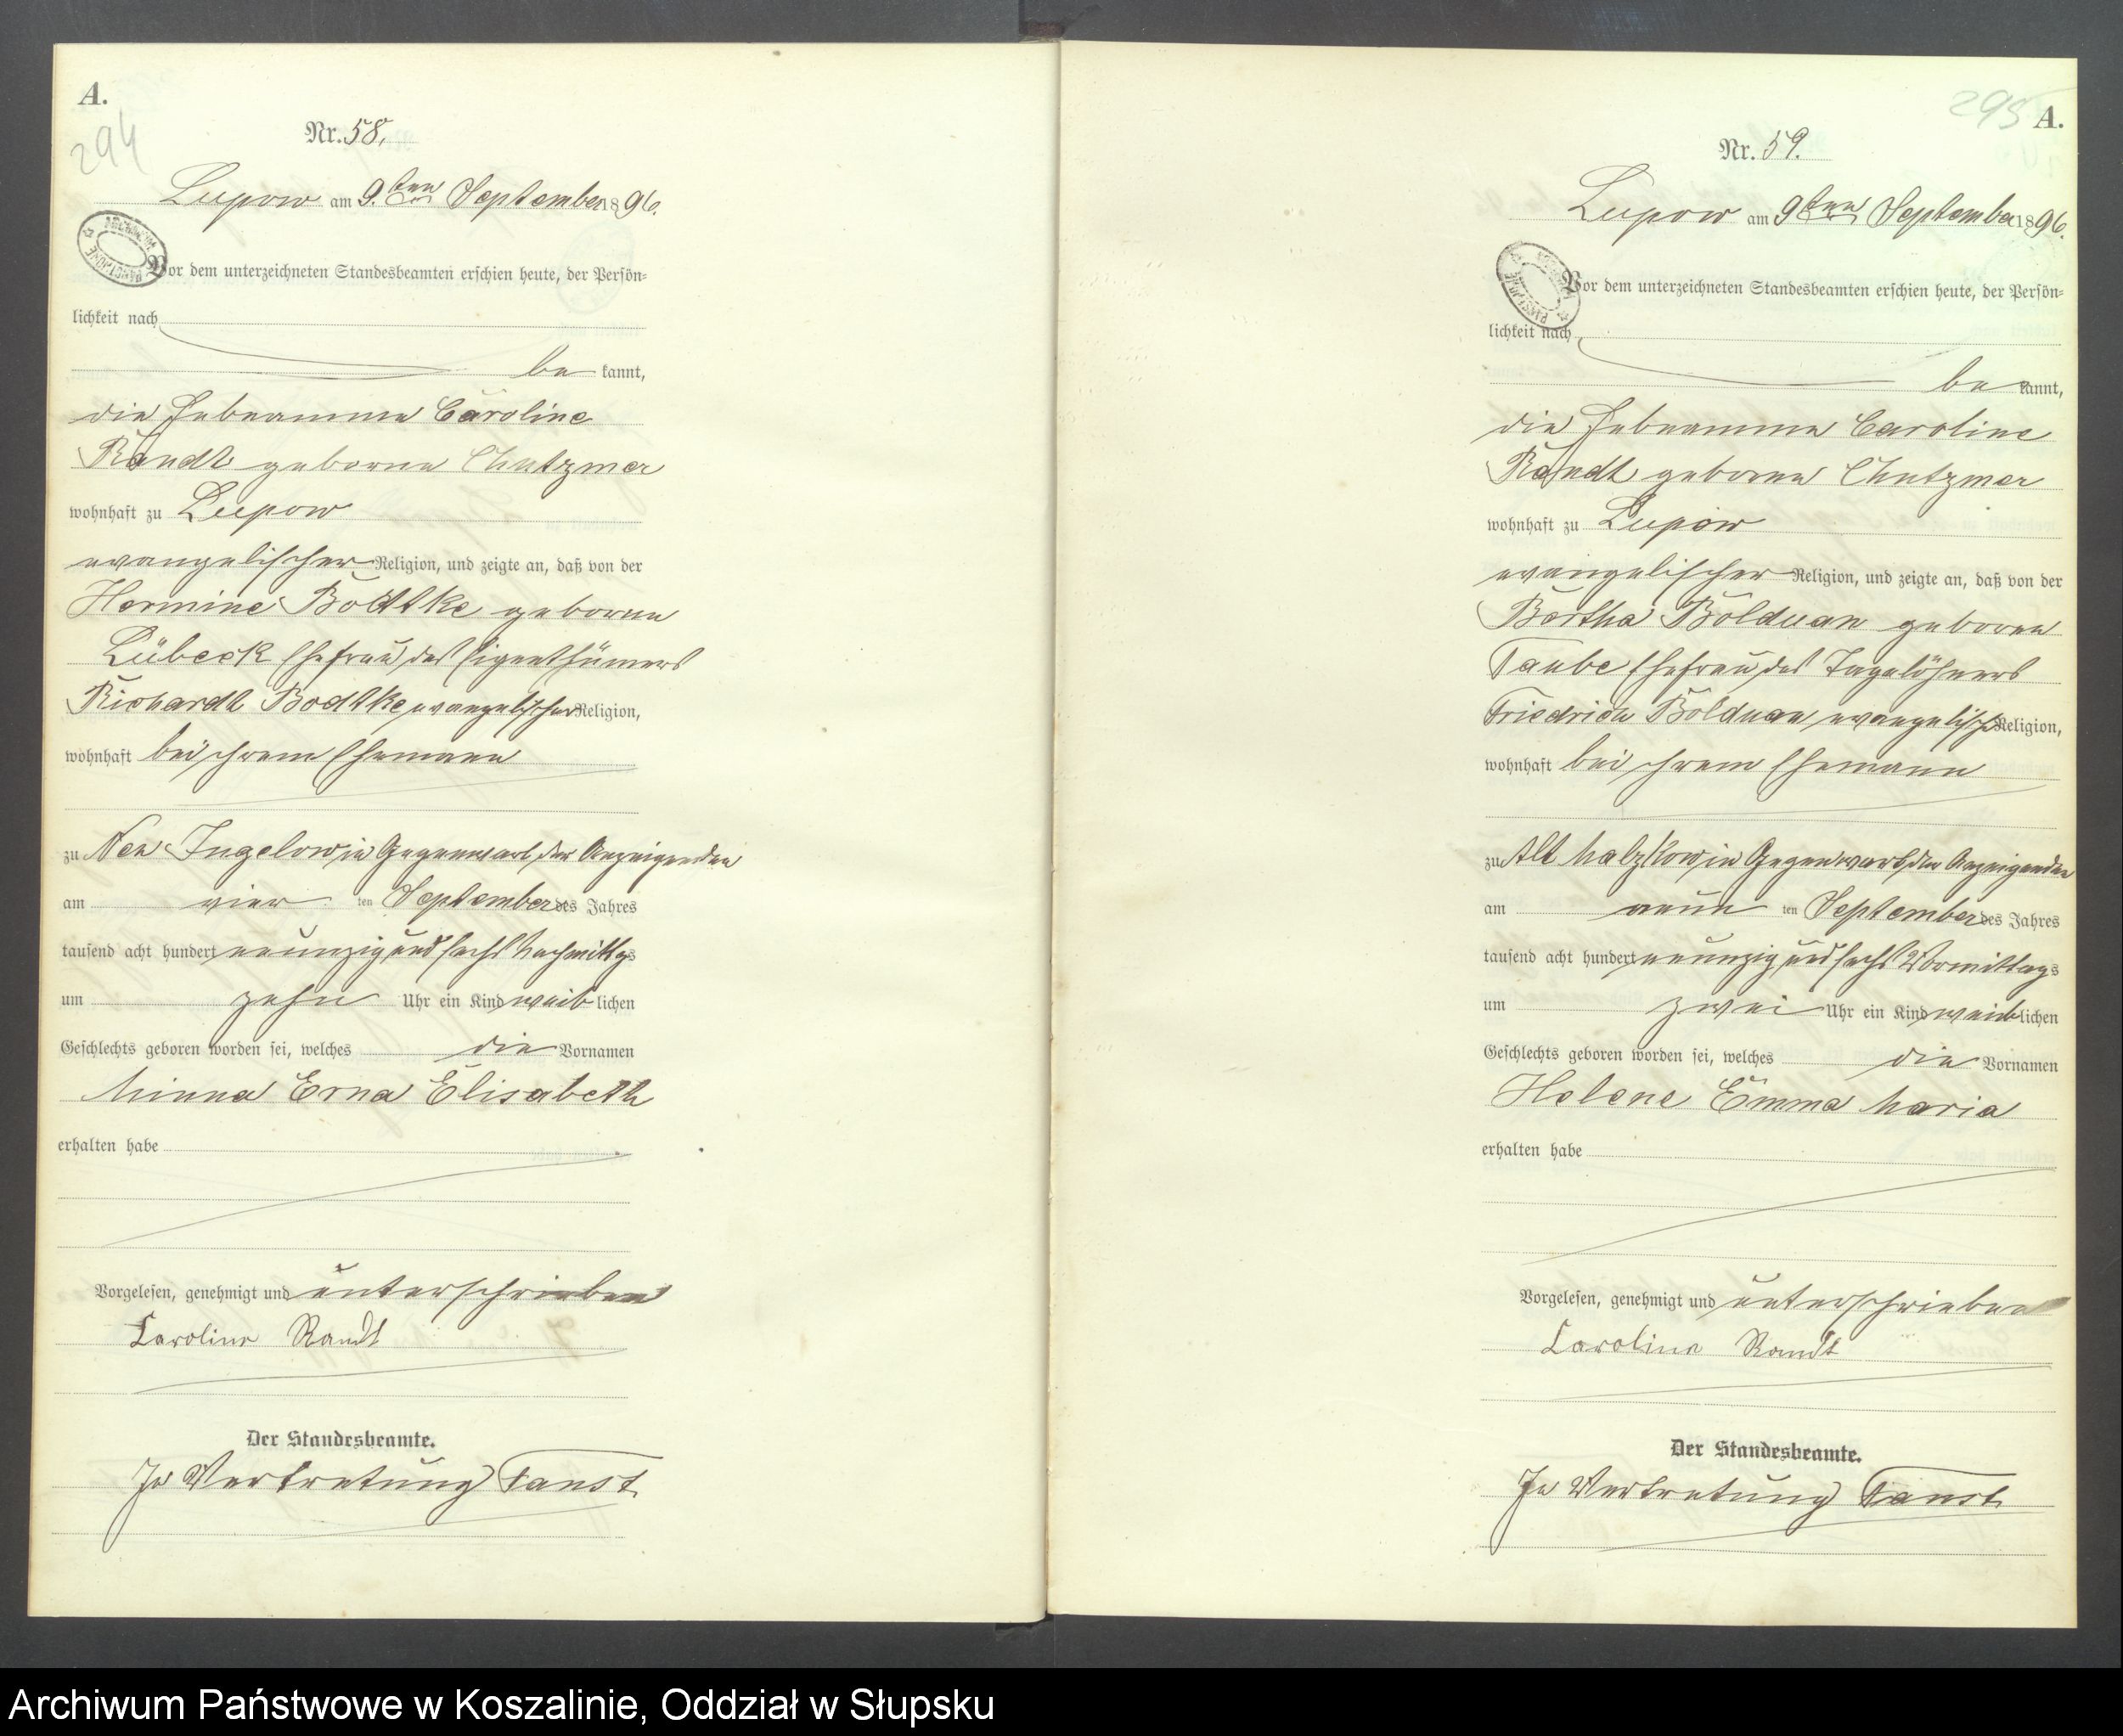 A.
294
Nr. 58.
Lupow am 9.ten September 1896.
Vor dem unterzeichneten Standesbeamten erschien heute, der Persön-
lichkeit nach
be kannt,
die Hebeamme Caroline
Randt geborne
wohnhaft zu Lupow
evangelischer Religion, und zeigte an, daß von der
Hermine Bodtke geborne
Lübeck Ehefrau des Eigenthümers
Richardt Bodtke evangelischer Religion,
wohnhaft bei ihrem Ehemann
zu Neu Jugelow in Gegenwart der Anzeigenden
am vier ten September des Jahres
tausend acht hundert neunzig und sechs Nachmittags
um zehn Uhr ein Kind weiblichen
Geschlechts geboren worden sei, welches die Vornamen
Minna Erna Elisabeth
erhalten habe
Vorgelesen, genehmigt und unterschrieben
Caroline Randt
Der Standesbeamte.
In Vertretung Faust
295
A.
Nr. 59.
Lupow am 9ten September 1896.
Vor dem unterzeichneten Standesbeamten erschien heute, der Persön-
lichkeit nach
be kannt,
die Hebeamme Caroline
Randt geborne
wohnhaft zu Lupow
evangelischer Religion, und zeigte an, daß von der
Bertha Bolduan geborne
Taube Ehefrau des Tagelöhners
Friedrich Bolduan evangelisch Religion,
wohnhaft bei ihrem Ehemann
zu Alt Malzkow in Gegenwart der Anzeigenden
am neun ten September des Jahres
tausend acht hundert neunzig und sechs Vormittags
um zwei Uhr ein Kind weiblichen
Geschlechts geboren worden sei, welches die Vornamen
Helene Emma Maria
erhalten habe
Vorgelesen, genehmigt und unterschrieben
Caroline Randt
Der Standesbeamte.
In Vertretung Faust
Archiwum Państwowe w Koszalinie, Oddział w Słupsku